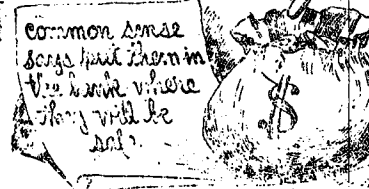 common sense
says put them in
the bank where
they will be
safe.
$